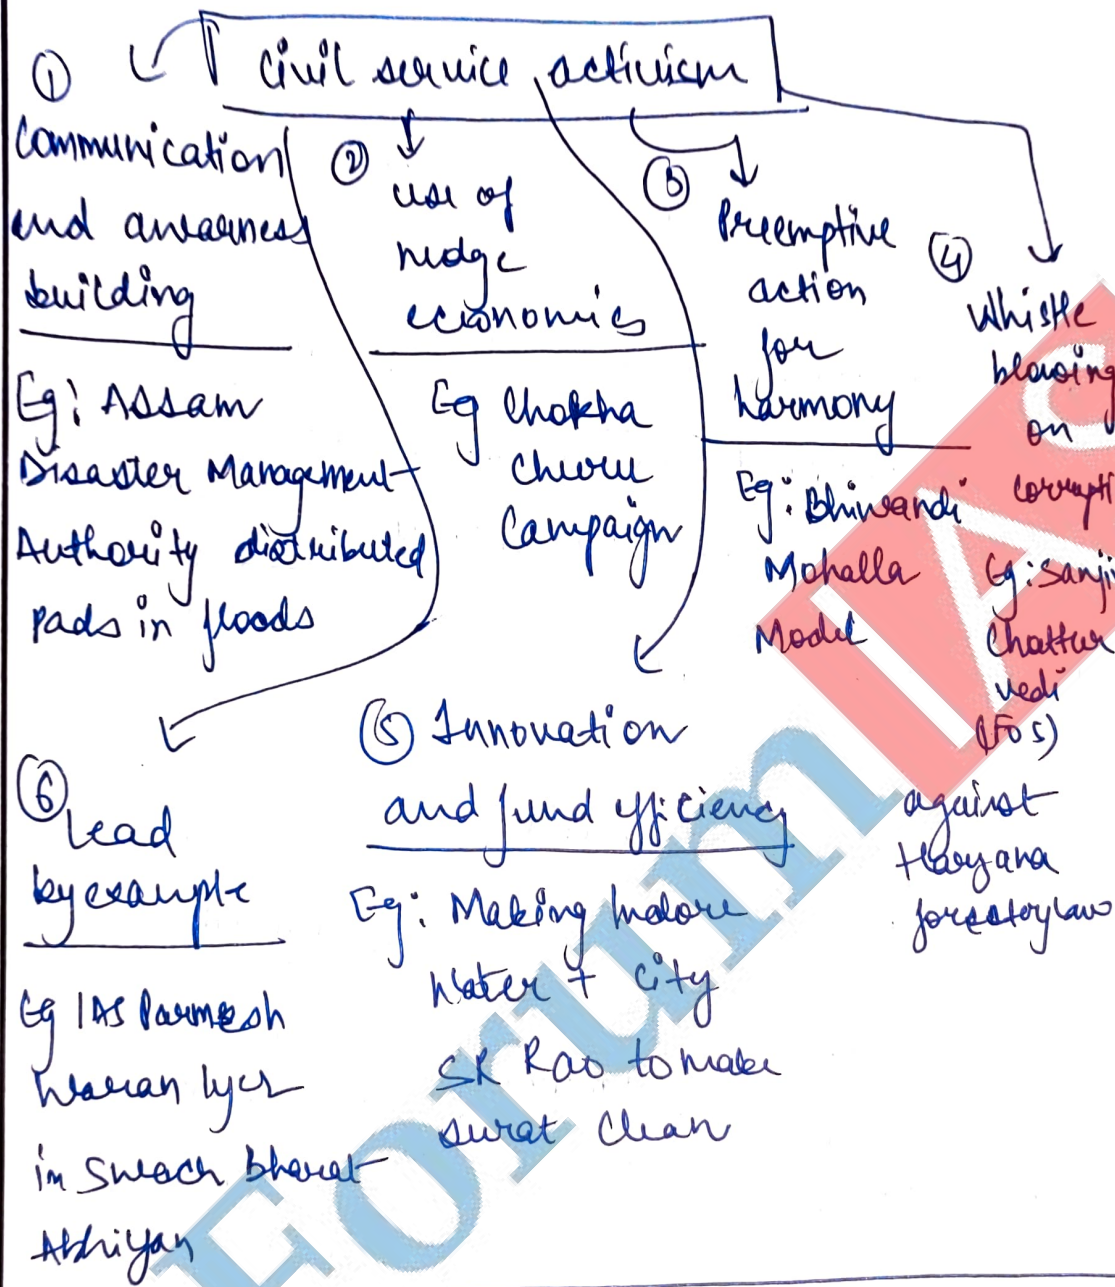 Civil service activism
①
Communication
and awarness
building
Eg: Assam
Disaster Management
Authority distributed
pads in floods
②
use of
nudge
economics
Eg Chokha
Churu
Campaign
③
Preemptive
action
for
harmony
Eg: Bhiwandi
Mohalla
Model
④
Whistle
blowing
on
corrupti
Eg: Sanji
Chattur
vedi
(FoS)
against
Haryana
forestry law
⑤ Innovation
and fund efficiency
Eg: Making Indore
Water + city
SR Rao to make
surat clean
⑥
lead
by example
Eg IAS Parmesh
waran Iyer
in Swach bharat
Abhiyan
Forum IAS